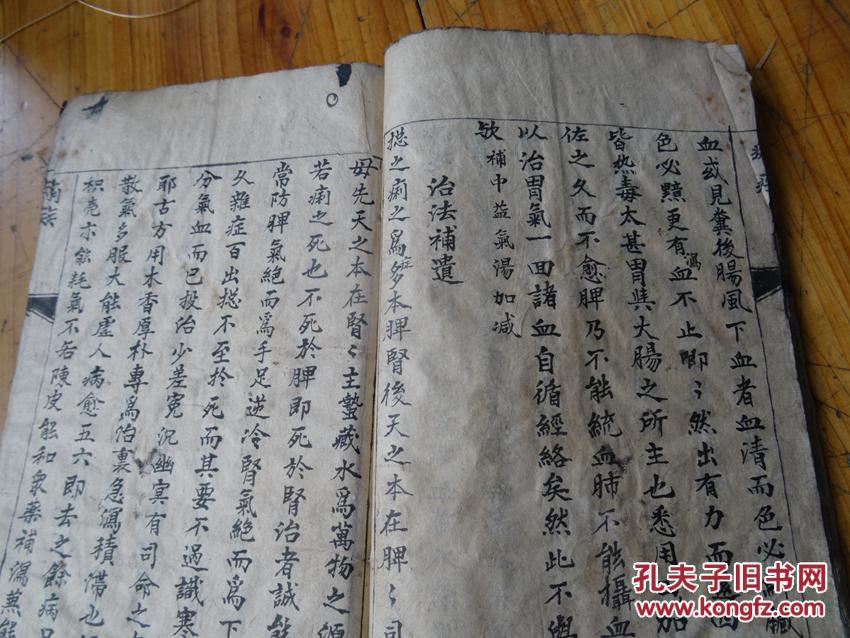 血或見糞後腸風下血者血清而色必
色必黯更有瀉血不止即〻然出有力而
皆熱毒太甚胃與大腸之所主也悉用
佐之久而不愈脾乃不能統血肺不能攝血
以治胃氣一回諸血自循經絡矣然此不與
欤 補中益氣湯加减
治法補遺
揔之痢之爲症多本脾腎後天之本在脾〻司
毋先天之本在腎〻主蟄藏水爲萬物之源
若痢之死也不死於脾即死於腎治者誠能
常防脾氣絕而爲手足逆冷腎氣絕而爲下
久雜症百出揔不至於死而其要不過識寒
分氣血而已投治少差寃沉幽冥有司命之
耶古方用木香厚朴專爲治裏急瀉積滯也
散氣多服大能虛人病愈五六即去之餘病
枳壳亦能耗氣不若陳皮能和衆藥補瀉蕪能
孔夫子旧书网
KONGFZ.COM